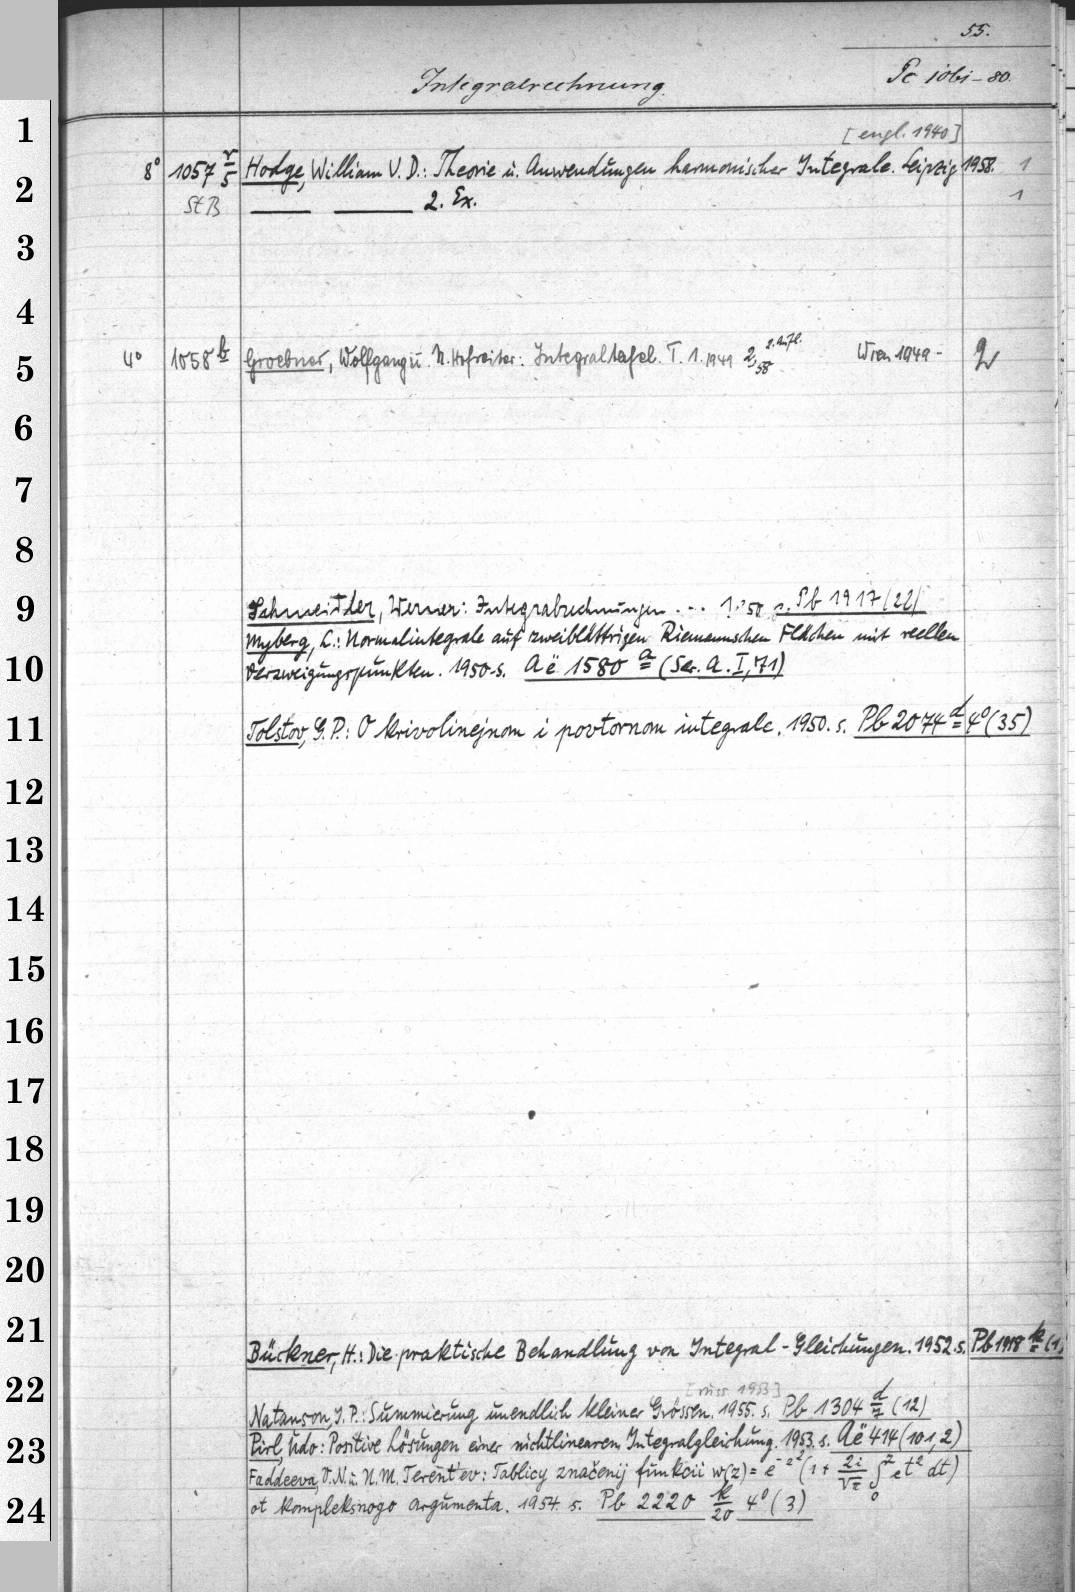 55.
Integralrechnung.
Pc 1061-80.
1
[engl. 1940]
8° 1057 r/5 Hodge, William V. D.: Theorie u. Anwendungen harmonischer Integrale. Leipzig 1958. 1
2
St B 2. Ex. 1
3
4
5
4° 1058 b Groebner, Wolfgang u. N. Hofreiter: Integraltafel. T. 1. 1949 2, 58 2. Aufl. Wien 1949 - 2
6
7
8
9
Schneidder, Werner: Integralrechnungen ... 1950 s. Pb 1917 (22)
Myberg, L.: Normalintegrale auf zweiblättrigen Riemannschen Flächen mit reellen
10
Verzweigungspunkten. 1950 s. Aë 1580 a (Ser. A. I, 71)
11
Tolstov, G. P.: O krivolinejnom i povtornom integrale. 1950. s. Pb 2074 d 4° (35)
12
13
14
15
16
17
18
19
20
21
Bückner, H.: Die praktische Behandlung von Integral-Gleichungen. 1952. s. Pb 1918 k (1)
22
[russ. 1953]
Natanson, I. P.: Summierung unendlich kleiner Grössen. 1955. s. Pb 1304 d/7 (12)
23
Pirl, Udo: Positive Lösungen einer nichtlinearen Integralgleichung. 1953. s. Aë 414 (101,2)
Faddeeva, V. N. u. N. M. Terent'ev: Tablicy značenij funkcii w(z) = e^-z² (1 + 2i/√π ∫₀^z e^t² dt)
24
ot kompleksnogo argumenta. 1954. s. Pb 2220 k/20 4° (3)